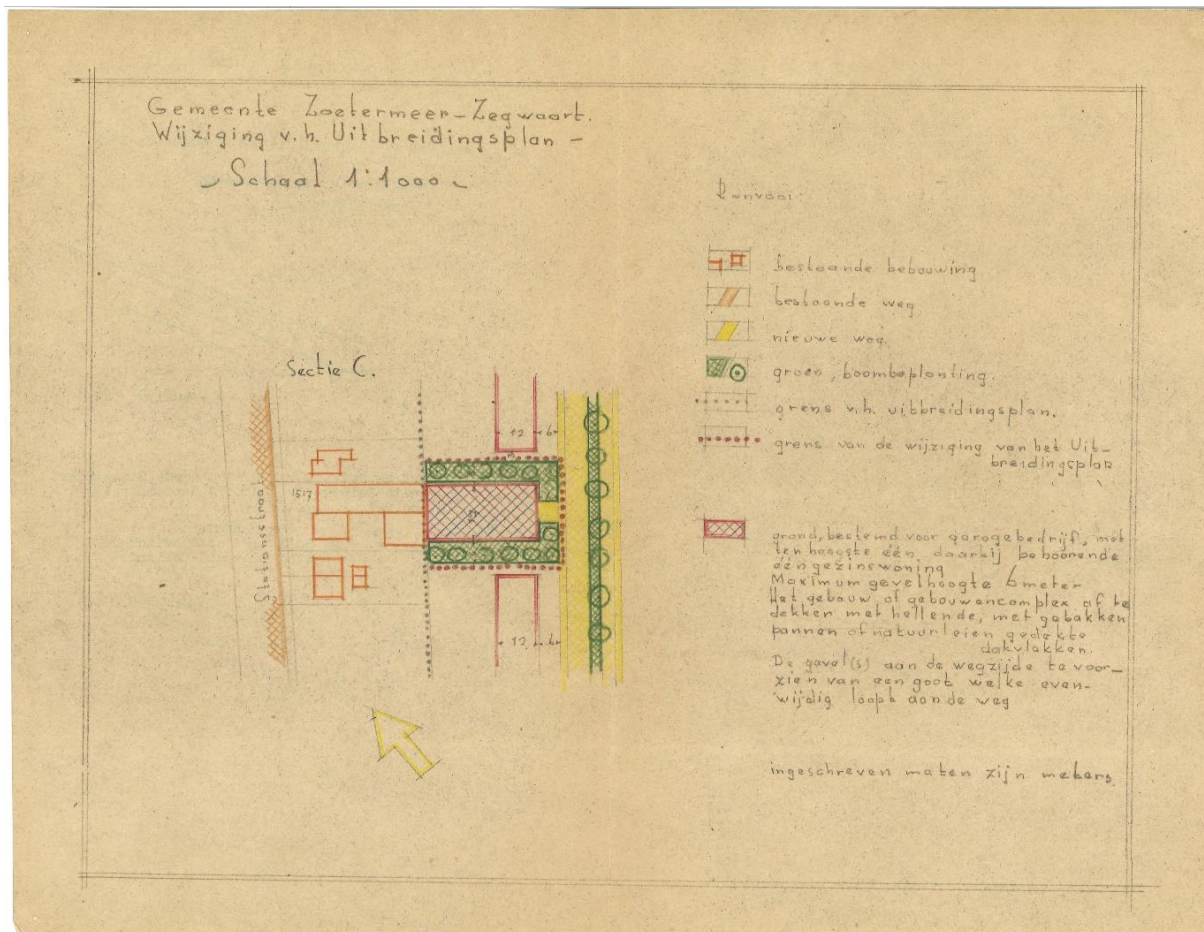 Gemeente Zoetermeer-Zegwaart.
Wijziging v.h. Uitbreidingsplan -
Schaal 1:1000
Sectie C.
Stationsstraat
1517
12
6
12
6
Renvooi
bestaande bebouwing
bestaande weg
nieuwe weg
groen, boombeplanting.
grens v.h. uitbreidingsplan.
grens van de wijziging van het Uit-
breidingsplan
grond, bestemd voor garagebedrijf, met
ten hoogste één daarbij behoorende
ééngezinswoning
Maximum gevelhoogte 6 meter
Het gebouw of gebouwencomplex af te
dekken met hellende, met gebakken
pannen of natuurleien gedekte
dakvlakken.
De gevel(s) aan de wegzijde te voor-
zien van een goot welke even-
wijdig loopt aan de weg
ingeschreven maten zijn meters.